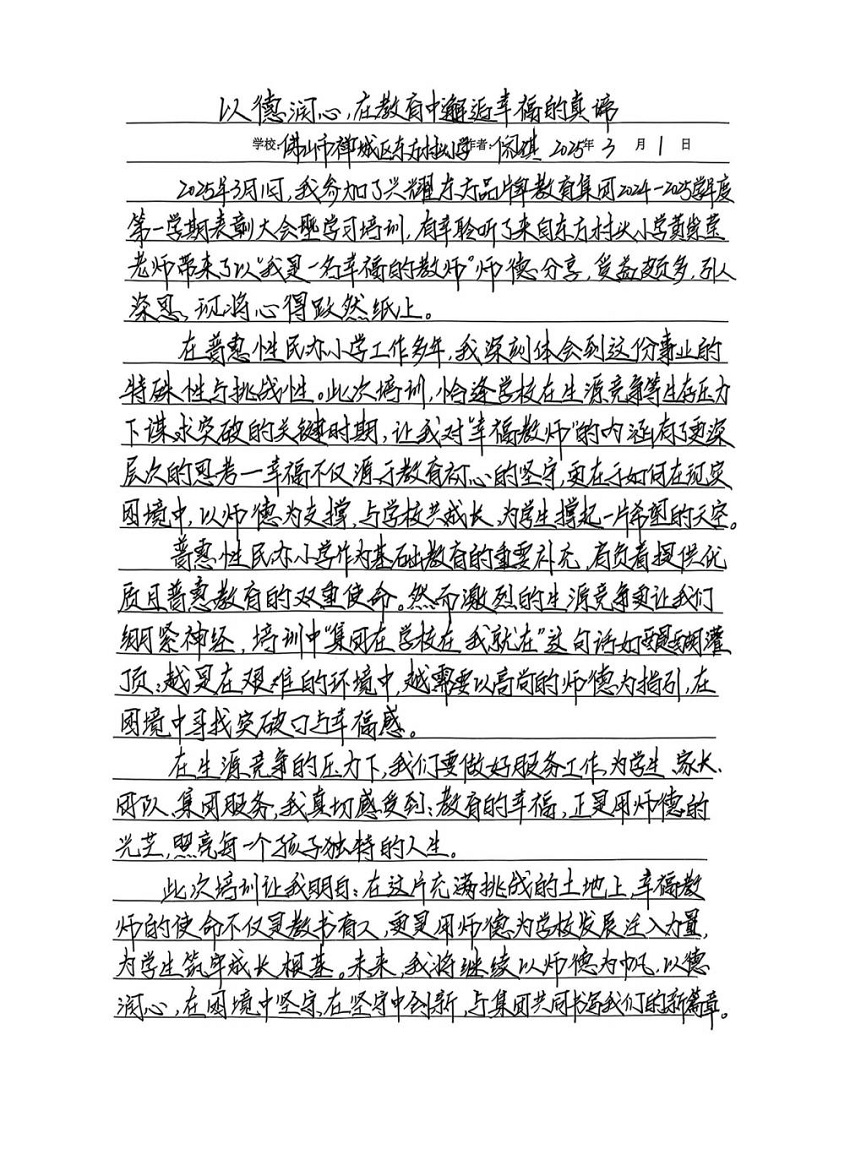 以德润心,在教育中邂逅幸福的真谛
学校:佛山市禅城区东方村头小学 作者: 2025年 3 月 1 日
2025年3月1日,我参加了兴耀东方品牌教育集团2024-2025学年度
第一学期表彰大会暨学习培训,有幸聆听了来自东方村头小学黄紫莹
老师带来了以“我是一名幸福的教师”师德分享,受益颇多,引人
深思,现将心得跃然纸上。
在普惠性民办小学工作多年,我深刻体会到这份事业的
特殊性与挑战性。此次培训,恰逢学校在生源竞争等生存压力
下谋求突破的关键时期,让我对“幸福教师”的内涵有了更深
层次的思考—幸福不仅源于教育初心的坚守,更在于如何在现实
困境中,以师德为支撑,与学校共成长,为学生撑起一片希望的天空。
普惠性民办小学作为基础教育的重要补充,肩负着提供优
质且普惠教育的双重使命。然而激烈的生源竞争更让我们
绷紧神经,培训中“集团在学校在我就在”这句话如醍醐灌
顶:越是在艰难的环境中,越需要以高尚的师德为指引,在
困境中寻找突破口与幸福感。
在生源竞争的压力下,我们要做好服务工作,为学生、家长、
团队、集团服务,我真切感受到:教育的幸福,正是用师德的
光芒,照亮每一个孩子独特的人生。
此次培训让我明白:在这片充满挑战的土地上,幸福教
师的使命不仅是教书育人,更是用师德为学校发展注入力量,
为学生筑牢成长根基。未来,我将继续以师德为帆,以德
润心,在困境中坚守,在坚守中创新,与集团共同书写我们的新篇章。